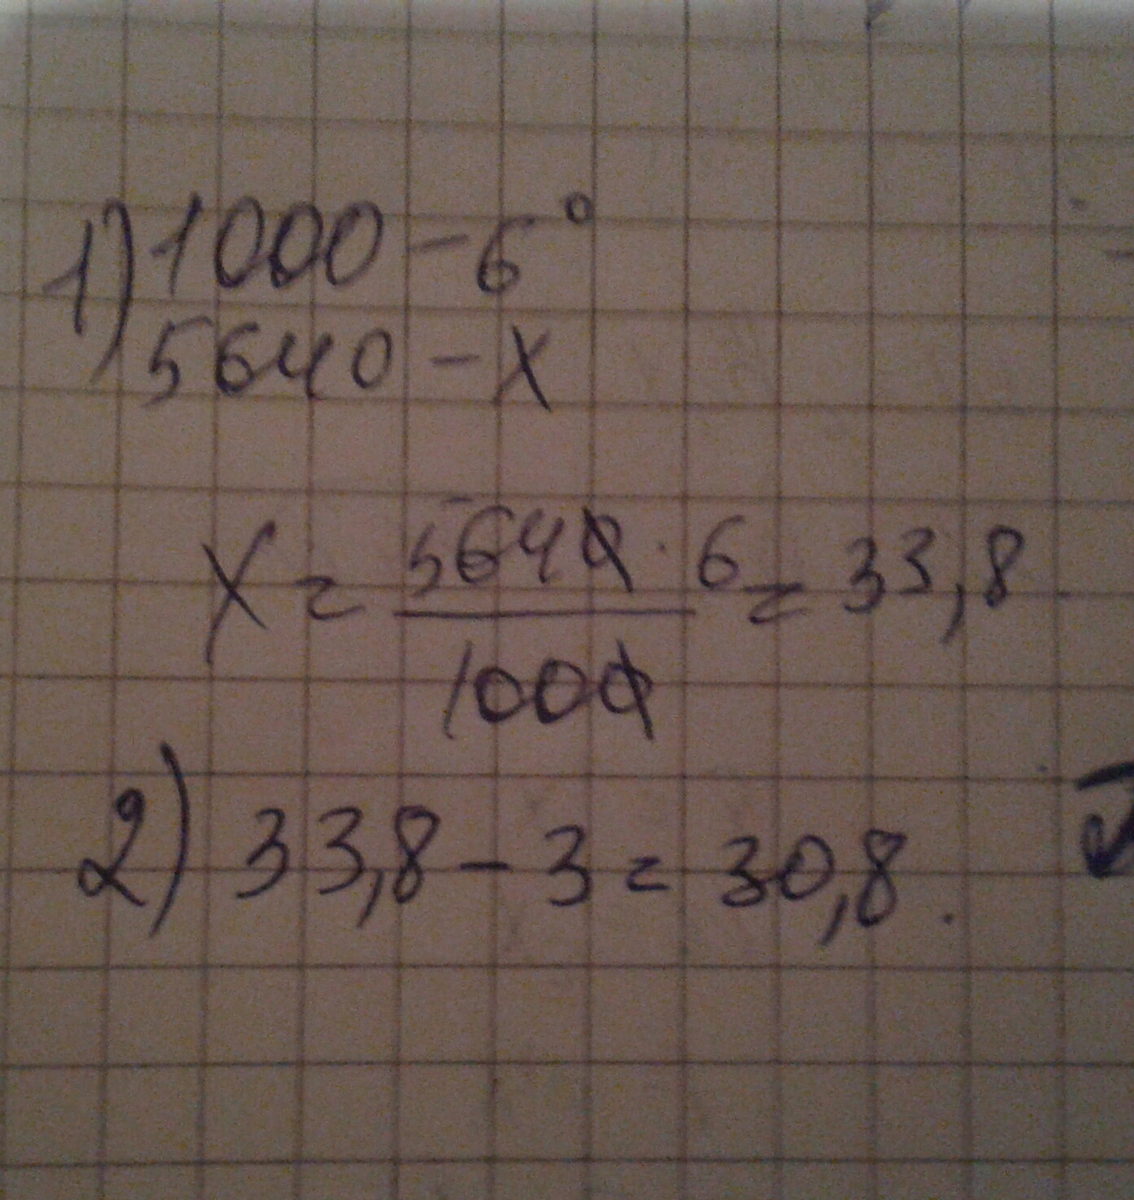 1) 1000 - 6°
5640 - X
X = 5640 · 6 / 1000 = 33,8
2) 33,8 - 3 = 30,8.